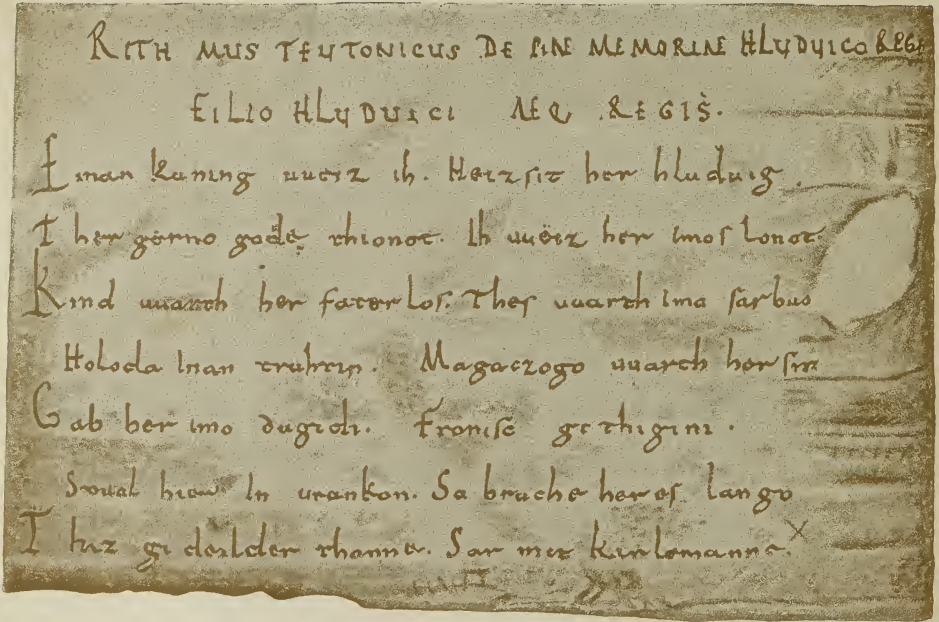 RITHMUS TEUTONICUS DE PIAE MEMORIAE HLUDUICO REGE
FILIO HLUDUICI AEQ REGIS.
Einan kuning uueiz ih. Heizsit her hluduig
Ther gerno gode thionot. Ih uueiz her imos lonot.
Kind uuarth her faterlos. Thes uuarth imo sarbuo
Holoda Inan truhtin. Magaczogo uuarth her sin
Gab her imo dugidi. Fronisc gethigini.
Stual hier In urankon. So bruche her es lango
Thaz gideilder thanne. Sar mit karlemanne.